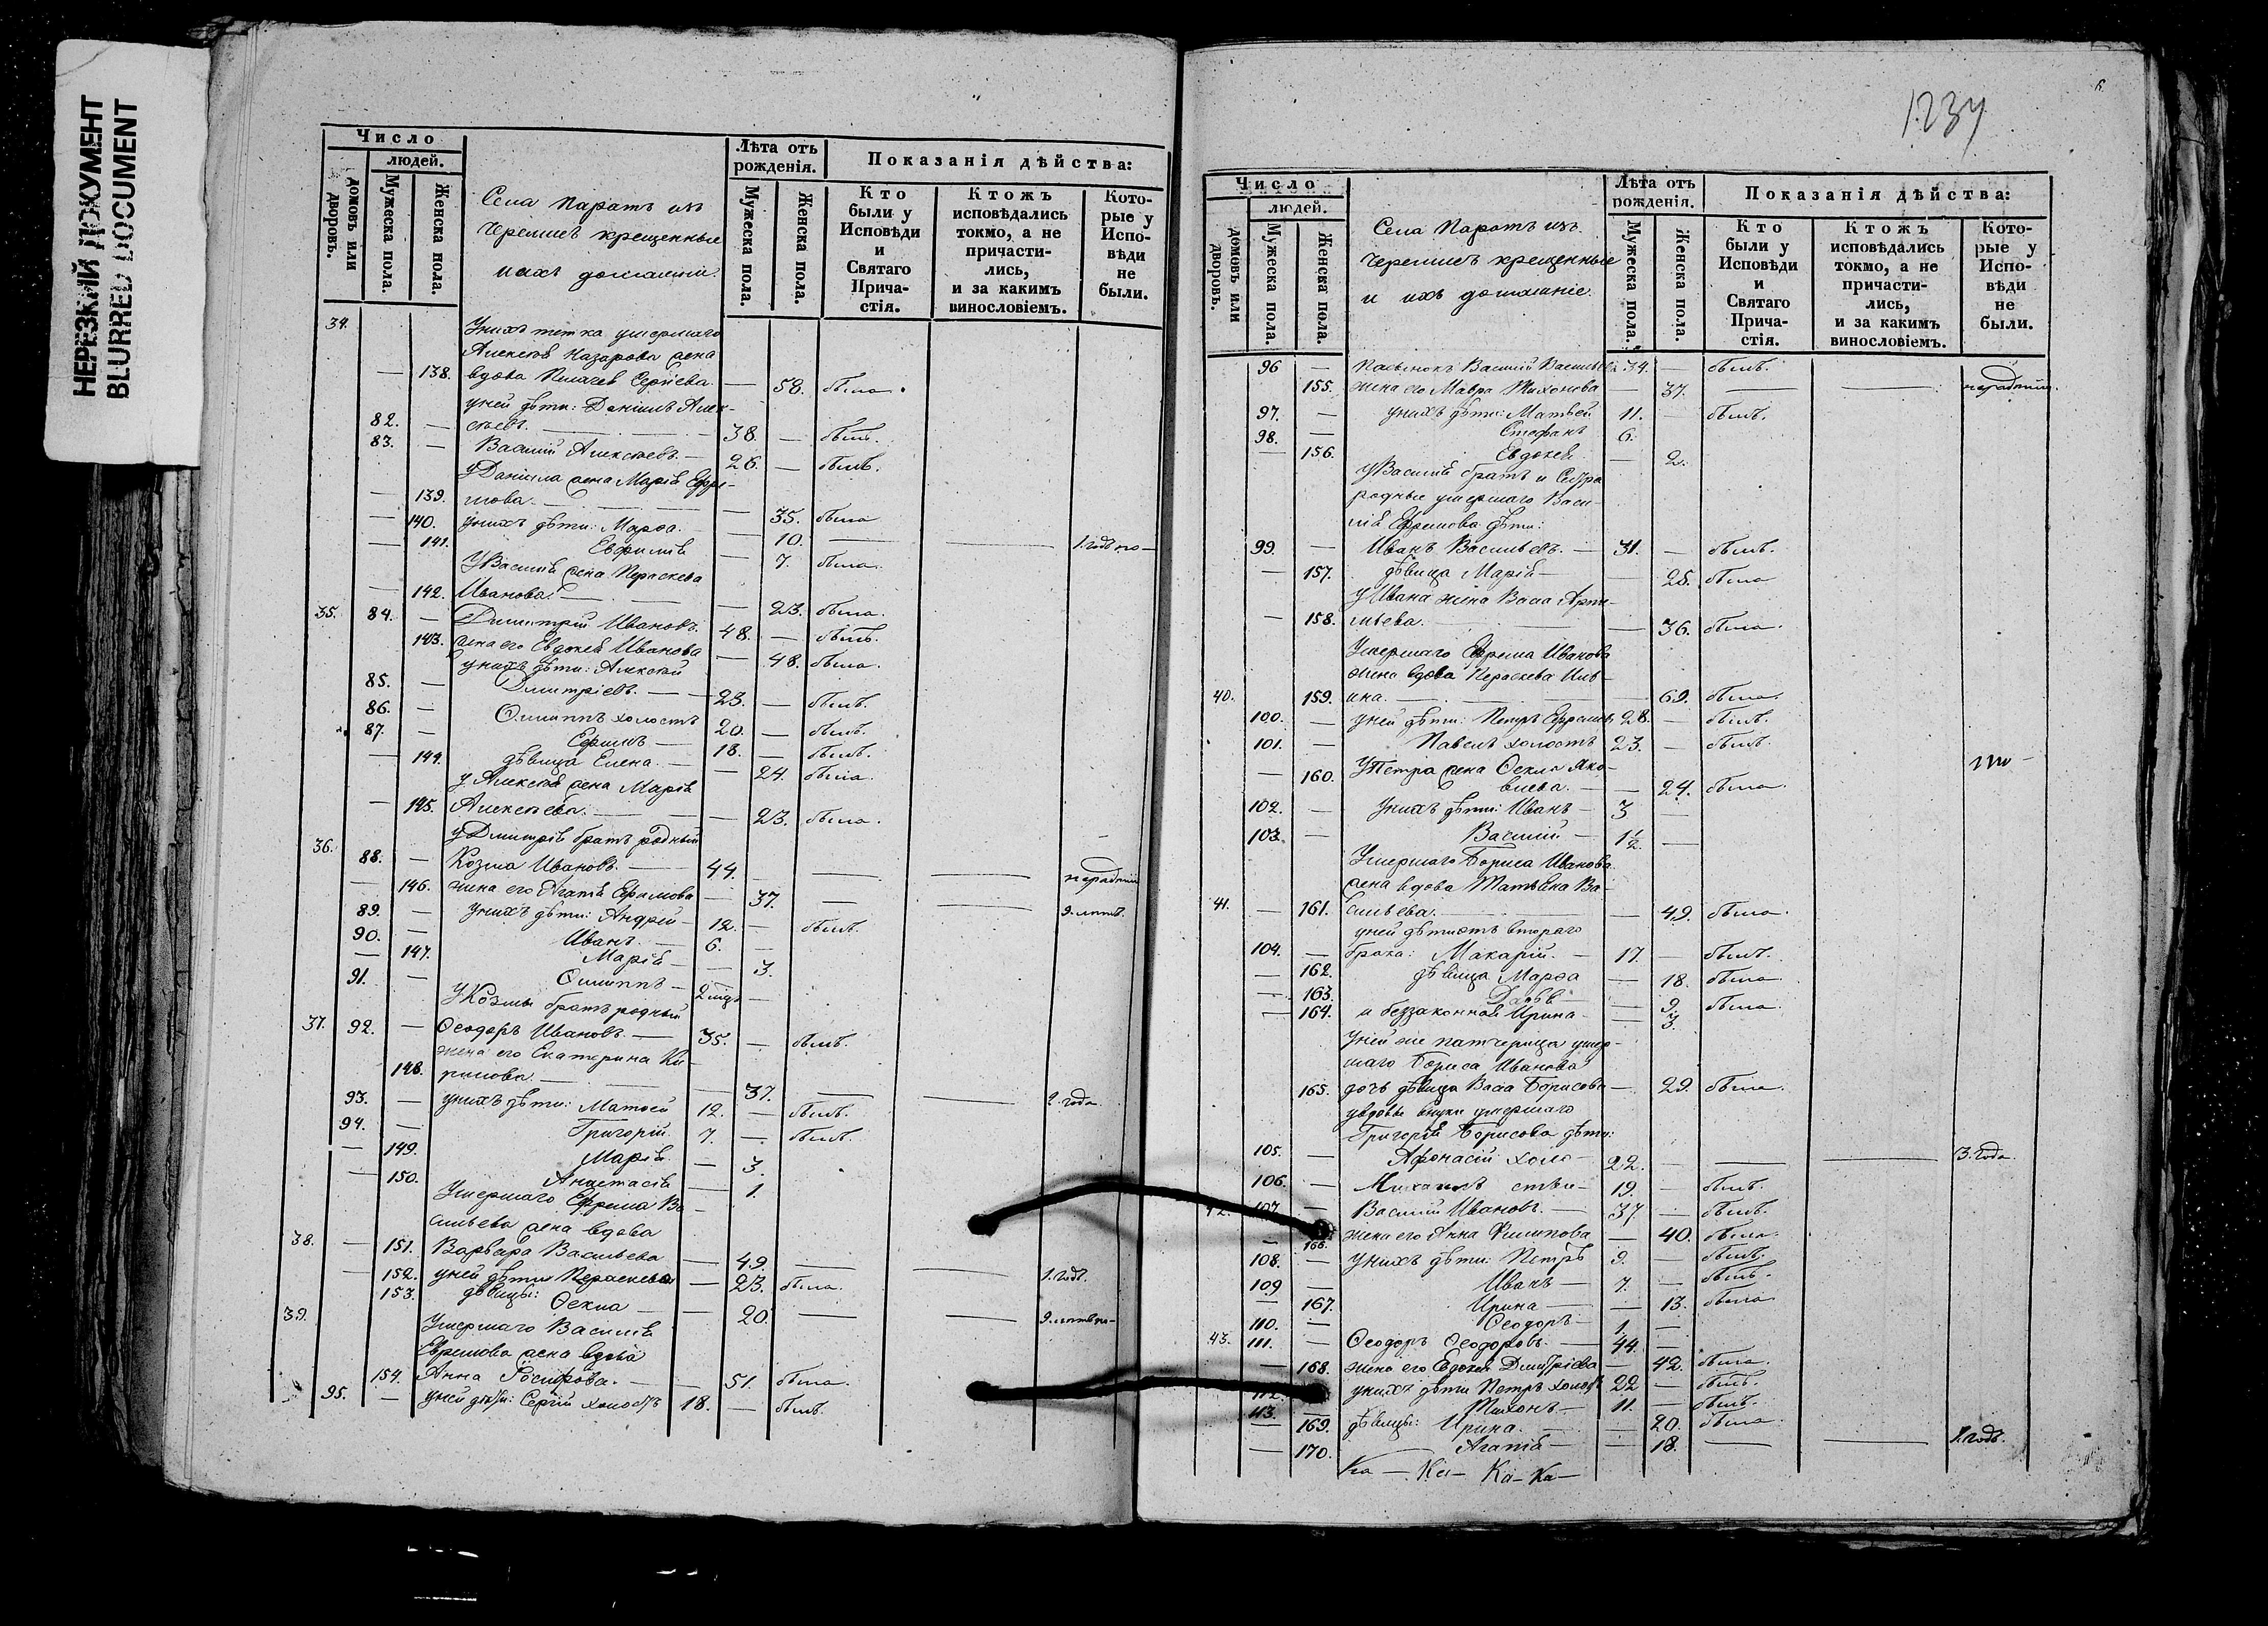 НЕРЕЗКИЙ ДОКУМЕНТ
BLURRED DOCUMENT
Число
людей.
домовъ или дворовъ.
Мужеска пола.
Женска пола.
Села Паратъ изъ
Черемисъ крещенные
и ихъ домашніе.
Лѣта отъ рожденія.
Мужеска пола.
Женска пола.
Показанія дѣйства:
Кто были у Исповѣди и Святаго Прича-стія.
Ктожъ исповѣдались токмо, а не причасти-лись, и за какимъ винословіемъ.
Кото-рые у Испо-вѣди не были.
34. У нихъ тетка умершаго
Алексѣя Назарова жена
— 138. вдова Сергіева — 58. была.
у ней дѣти: Даніилъ Алек-
82. — сѣевъ. — 38. — былъ.
83. — Василій Алексѣевъ. — 26. — былъ.
у Даніила жена Марія Ефре-
— 139. мова. — 35. была
— 140. у нихъ дѣти: Марѳа. — 10. —
— 141. Евфимія — 7. была. 1. годъ по —
У Василія жена Параскева
— 142. Иванова. — 23. была.
35. 84. — Димитрій Ивановъ. 48. — былъ.
143. жена его Евдокія Иванова — 48. была.
у нихъ дѣти: Алексѣй
85. — Димитріевъ. — 23. — былъ.
86. — Филиппъ холостъ 20. — былъ.
87. — Ефимъ — 18. — былъ.
— 144. дѣвица Елена. — 24. была.
у Алексѣя жена Марія
— 145. Алексѣева. — 23. была.
36. у Димитрія братъ родный
88. — Козма Ивановъ. — 44. — нерадѣнію
— 146. жена его Агаѳія Ефремова — 37. — 9. лѣтъ.
89. — у нихъ дѣти: Андрей — 12. — былъ.
90. — Иванъ. — 6. —
— 147. Марія — 3.
91. — Филиппъ — 2 —
У Козмы братъ родный
37. 92. — Ѳеодоръ Ивановъ. — 35. — былъ.
жена его Екатерина Ки-
148. рилова. — 37. — 2. года.
93. — у нихъ дѣти: Матѳей 12. — былъ.
94. — Григорій. 7. — былъ.
— 149. Марія. — 3.
— 150. Анастасія — 1.
Умершаго Ефрема Ва-
сильева жена вдова
38. — 151. Варвара Васильева — 49. — 1. годъ.
152. у ней дѣти Параскева — 23. была.
153. дѣвицы: Ѳекла — 20. — 9. лѣтъ по —
39. Умершаго Василія
Ефремова жена вдова
154. Анна — 51. была.
95. — у ней дѣти: Сергій холостъ 18. — былъ.
1234
6.
Число
людей.
домовъ или дворовъ.
Мужеска пола.
Женска пола.
Села Паратъ изъ
Черемисъ крещенные
и ихъ домашніе.
Лѣта отъ рожденія.
Мужеска пола.
Женска пола.
Показанія дѣйства:
Кто были у Исповѣди и Святаго Прича-стія.
Ктожъ исповѣдались токмо, а не причасти-лись, и за какимъ винословіемъ.
Кото-рые у Испо-вѣди не были.
96 — Пасынокъ Василій Васильевъ 34. — былъ.
155. жена его Мавра Тихонова — 37. — нерадѣнію.
97. — у нихъ дѣти: Матвей 11. — былъ.
98. — Стефанъ 6.
— 156. Евдокія — 2.
у Василія братъ и сестра
родные умершаго Васи-
лія Ефремова дѣти:
99. — Иванъ Васильевъ. — 31. — былъ.
— 157. дѣвица Марія — 25. была
у Ивана жена Васа Арте-
— 158. мьева. — 36. была.
Умершаго Ефрема Иванова
жена вдова Параскева Иль-
40. 159. ина. — 69. была.
100. — у ней дѣти: Петръ Ефремовъ 28. — былъ.
101. — Павелъ холостъ 23. — былъ.
— 160. У Петра жена Ѳекла Яко-
влева. — 24. была.
102. — у нихъ дѣти: Иванъ — 3 —
103. — Василій — 1½ —
Умершаго Бориса Иванова
жена вдова Татьяна Ва-
41. — 161. сильева. — 49. была.
у ней дѣти отъ втораго
104. — брака: Макарій. — 17. — былъ.
— 162. дѣвица Марѳа — 18. была
— 163. Дарья — 9. была.
— 164. и беззаконная Ирина — 3.
У ней же патчерица умер-
шаго Бориса Иванова
165. дочь дѣвица Васа Борисова — 29. была.
у вдовы внуки умершаго
Григорія Борисова дѣти:
105. — Афонасій холо- 22. — 3. года.
106. — Михаилъ сты — 19. — былъ.
42. 107. — Василій Ивановъ. — 37 — былъ.
— 166. жена его Анна Филипова — 40. была.
108. — у нихъ дѣти: Петръ 9. — былъ.
109 — Иванъ — 7. — былъ.
— 167. Ирина — 13. была
110. — Ѳеодоръ — 1. —
43. 111. — Ѳеодоръ Ѳеодоровъ. — 44. —
— 168. жена его Евдокія Димитріева — 42. была.
112. — у нихъ дѣти Петръ холостъ 22 — былъ.
113. — Тихонъ. — 11. — былъ.
— 169. дѣвицы: Ирина. — 20. была.
— 170. Агаѳія — 18. — 1. годъ.
Ка — Ка — Ка — Ка —